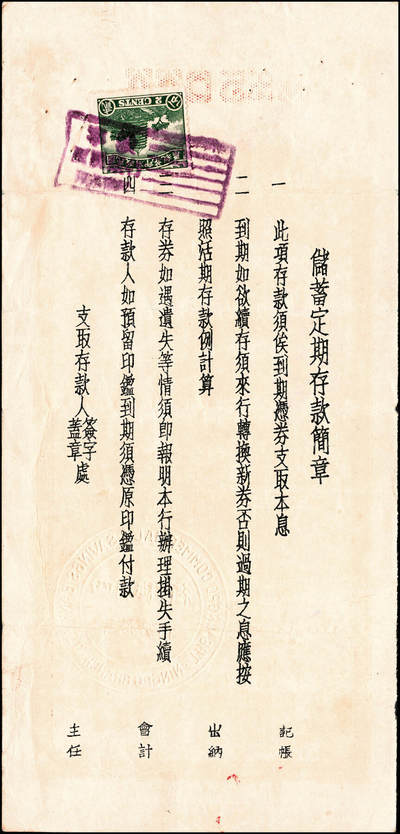 儲蓄定期存款簡章
一 此項存款須俟到期憑券支取本息
二 到期如欲續存須來行轉換新券否則過期之息應按
照活期存款例計算
三 存券如遇遺失等情須即報明本行辦理掛失手續
四 存款人如預留印鑑到期須憑原印鑑付款
支取存款人簽字蓋章處
記帳
出納
會計
主任
2 CENTS